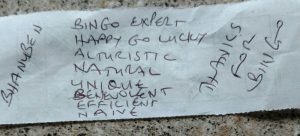 SHANYBEN
BINGO EXPERT
HAPPY GO LUCKY
ALTURISTIC
NATURAL
UNIQUE
BENEVOLENT
EFFICIENT
NAIVE
THANKS
FOR
BINGO